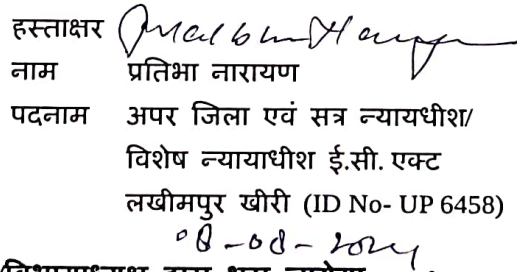 हस्ताक्षर
नाम प्रतिभा नारायण
पदनाम अपर जिला एवं सत्र न्यायधीश/
विशेष न्यायाधीश ई.सी. एक्ट
लखीमपुर खीरी (ID No- UP 6458)
08-08-2024